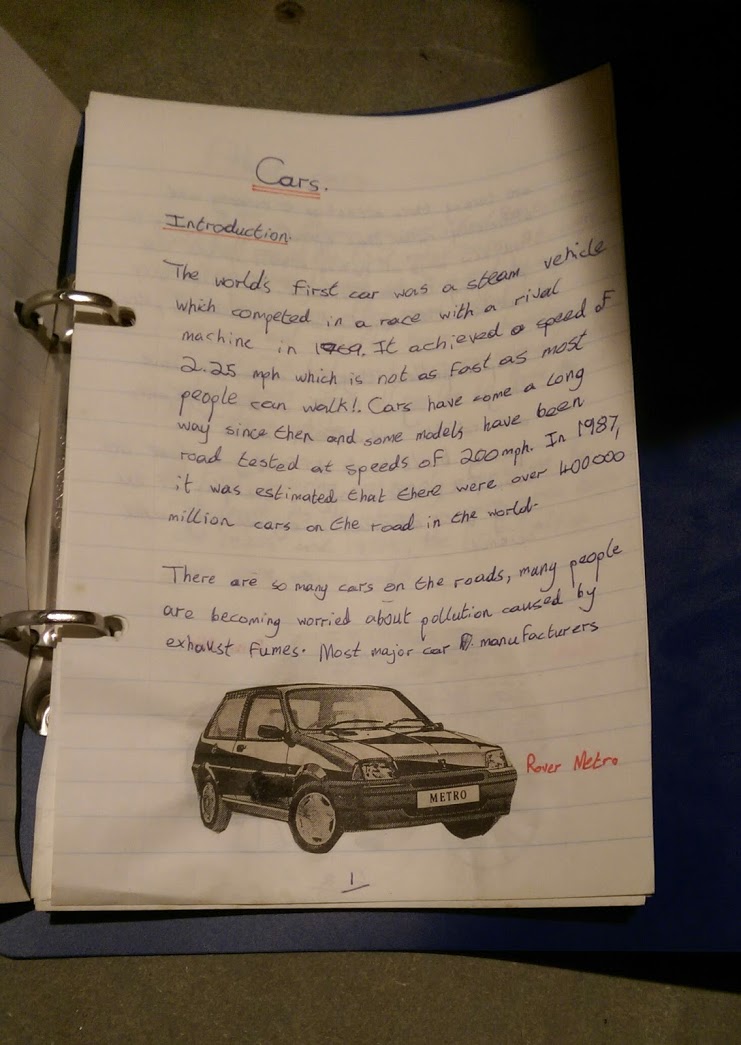 Cars.
Introduction.
The worlds first car was a steam vehicle
which competed in a race with a rival
machine in 1969. It achieved a speed of
2.25 mph which is not as fast as most
people can walk!. Cars have come a long
way since then and some models have been
road tested at speeds of 200mph. In 1987,
it was estimated that there were over 400000
million cars on the road in the world.
There are so many cars on the roads, many people
are becoming worried about pollution caused by
exhaust fumes. Most major car manufacturers
Rover Metro
METRO
1